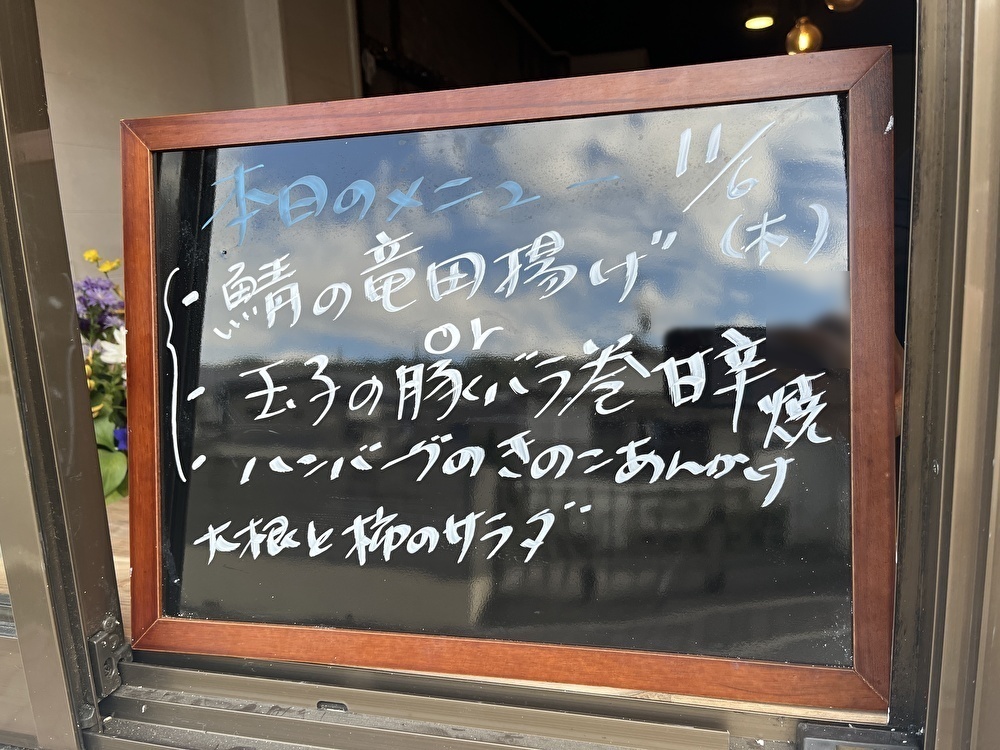 本日のメニュー 11/6
(木)
・鯖の竜田揚げ
or
・玉子の豚バラ巻甘辛焼
・ハンバーグのきのこあんかけ
大根と柿のサラダ